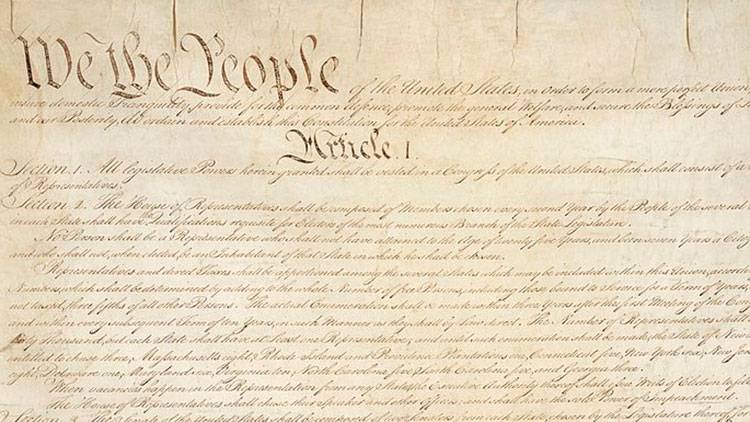 We the People of the United States, in Order to form a more perfect Union,
insure domestic Tranquility, provide for the common defence, promote the general Welfare, and secure the Blessings of
and our Posterity, do ordain and establish this Constitution for the United States of America.
Article. I.
Section. 1. All legislative Powers herein granted shall be vested in a Congress of the United States, which shall consist of a
of Representatives.
Section. 2. The House of Representatives shall be composed of Members chosen every second Year by the People of the several
in each State shall have Qualifications requisite for Electors of the most numerous Branch of the State Legislature.
No Person shall be a Representative who shall not have attained to the Age of twenty five Years, and been seven Years a
and who shall not, when elected, be an Inhabitant of that State in which he shall be chosen.
Representatives and direct Taxes shall be apportioned among the several States which may be included within this Union,
Numbers, which shall be determined by adding to the whole Number of free Persons, including those bound to Service for a Term of Years,
not taxed, three fifths of all other Persons. The actual Enumeration shall be made within three Years after the first Meeting of the
and within every subsequent Term of ten Years, in such Manner as they shall by Law direct. The Number of Representatives shall
thirty Thousand, but each State shall have at Least one Representative; and until such enumeration shall be made, the State of New
entitled to chuse three, Massachusetts eight, Rhode Island and Providence Plantations one, Connecticut five, New York six, New
eight, Delaware one, Maryland six, Virginia ten, North Carolina five, South Carolina five, and Georgia three.
When vacancies happen in the Representation from any State, the Executive Authority thereof shall issue Writs of Election to
The House of Representatives shall chuse their Speaker and other Officers; and shall have the sole Power of Impeachment.
Section. 3. The Senate of the United States shall be composed of two Senators from each State, chosen by the Legislature thereof,